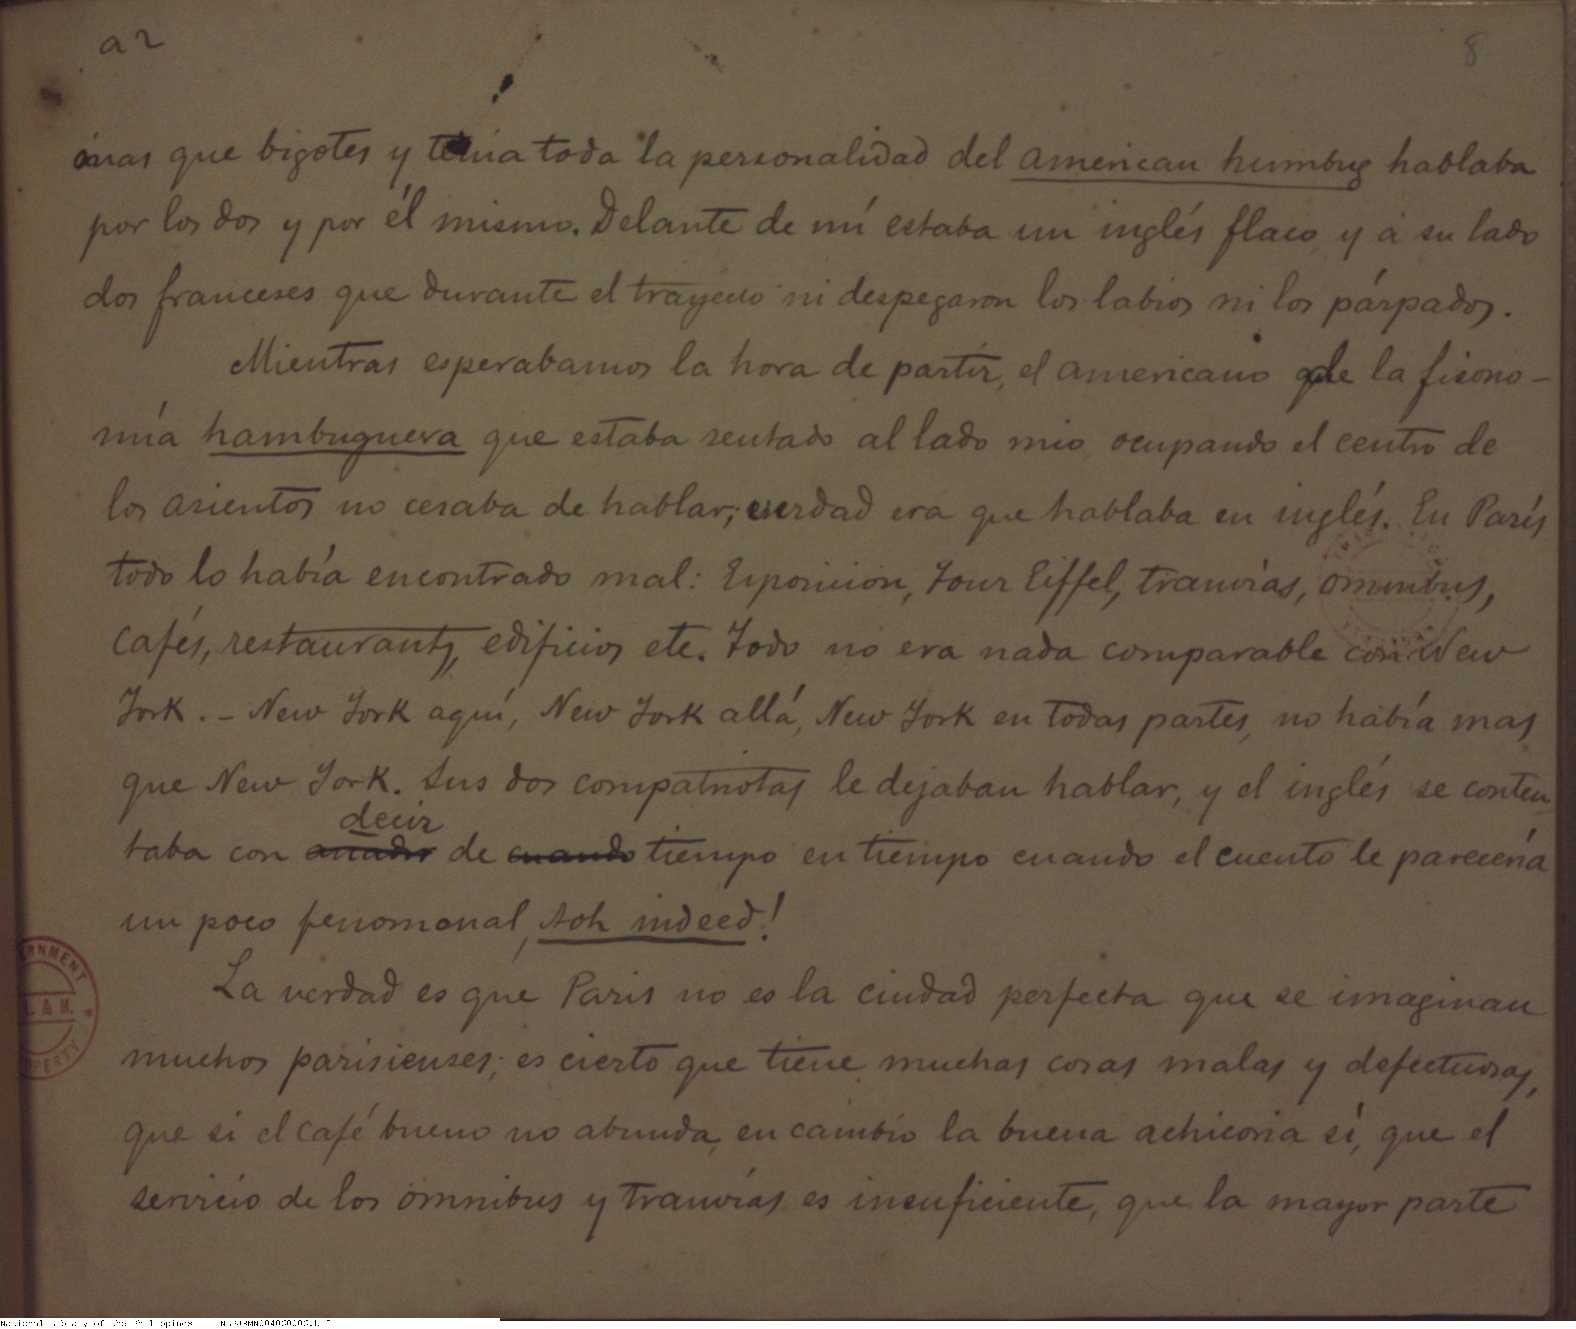 a 2
8
mas que bigotes y tenia toda la personalidad del american humbug hablaba
por los dos y por él mismo. Delante de mí estaba un inglés flaco y á su lado
dos franceses que durante el trayecto ni despegaron los labios ni los párpados.
Mientras esperabamos la hora de partir, el americano de la fisono-
mía hambuguera que estaba sentado al lado mio ocupando el centro de
los asientos no cesaba de hablar; verdad era que hablaba en inglés. En París
todo lo había encontrado mal: Exposicion, Tour Eiffel, tranvías, omnibus,
cafés, restaurants, edificios etc. Todo no era nada comparable con New
York. - New York aquí, New York allá, New York en todas partes, no había mas
que New York. Sus dos compatriotas le dejaban hablar, y el inglés se conten
decir
taba con añadir de cuando tiempo en tiempo cuando el cuento le parecería
un poco fenomonal, Aoh indeed!
La verdad es que Paris no es la ciudad perfecta que se imaginan
muchos parisienses; es cierto que tiene muchas cosas malas y defectuosas,
que si el café bueno no abunda, en cambio la buena achicoria sí, que el
servicio de los ómnibus y tranvías es insuficiente, que la mayor parte
GOVERNMENT
PROPERTY
National Library of the Philippines